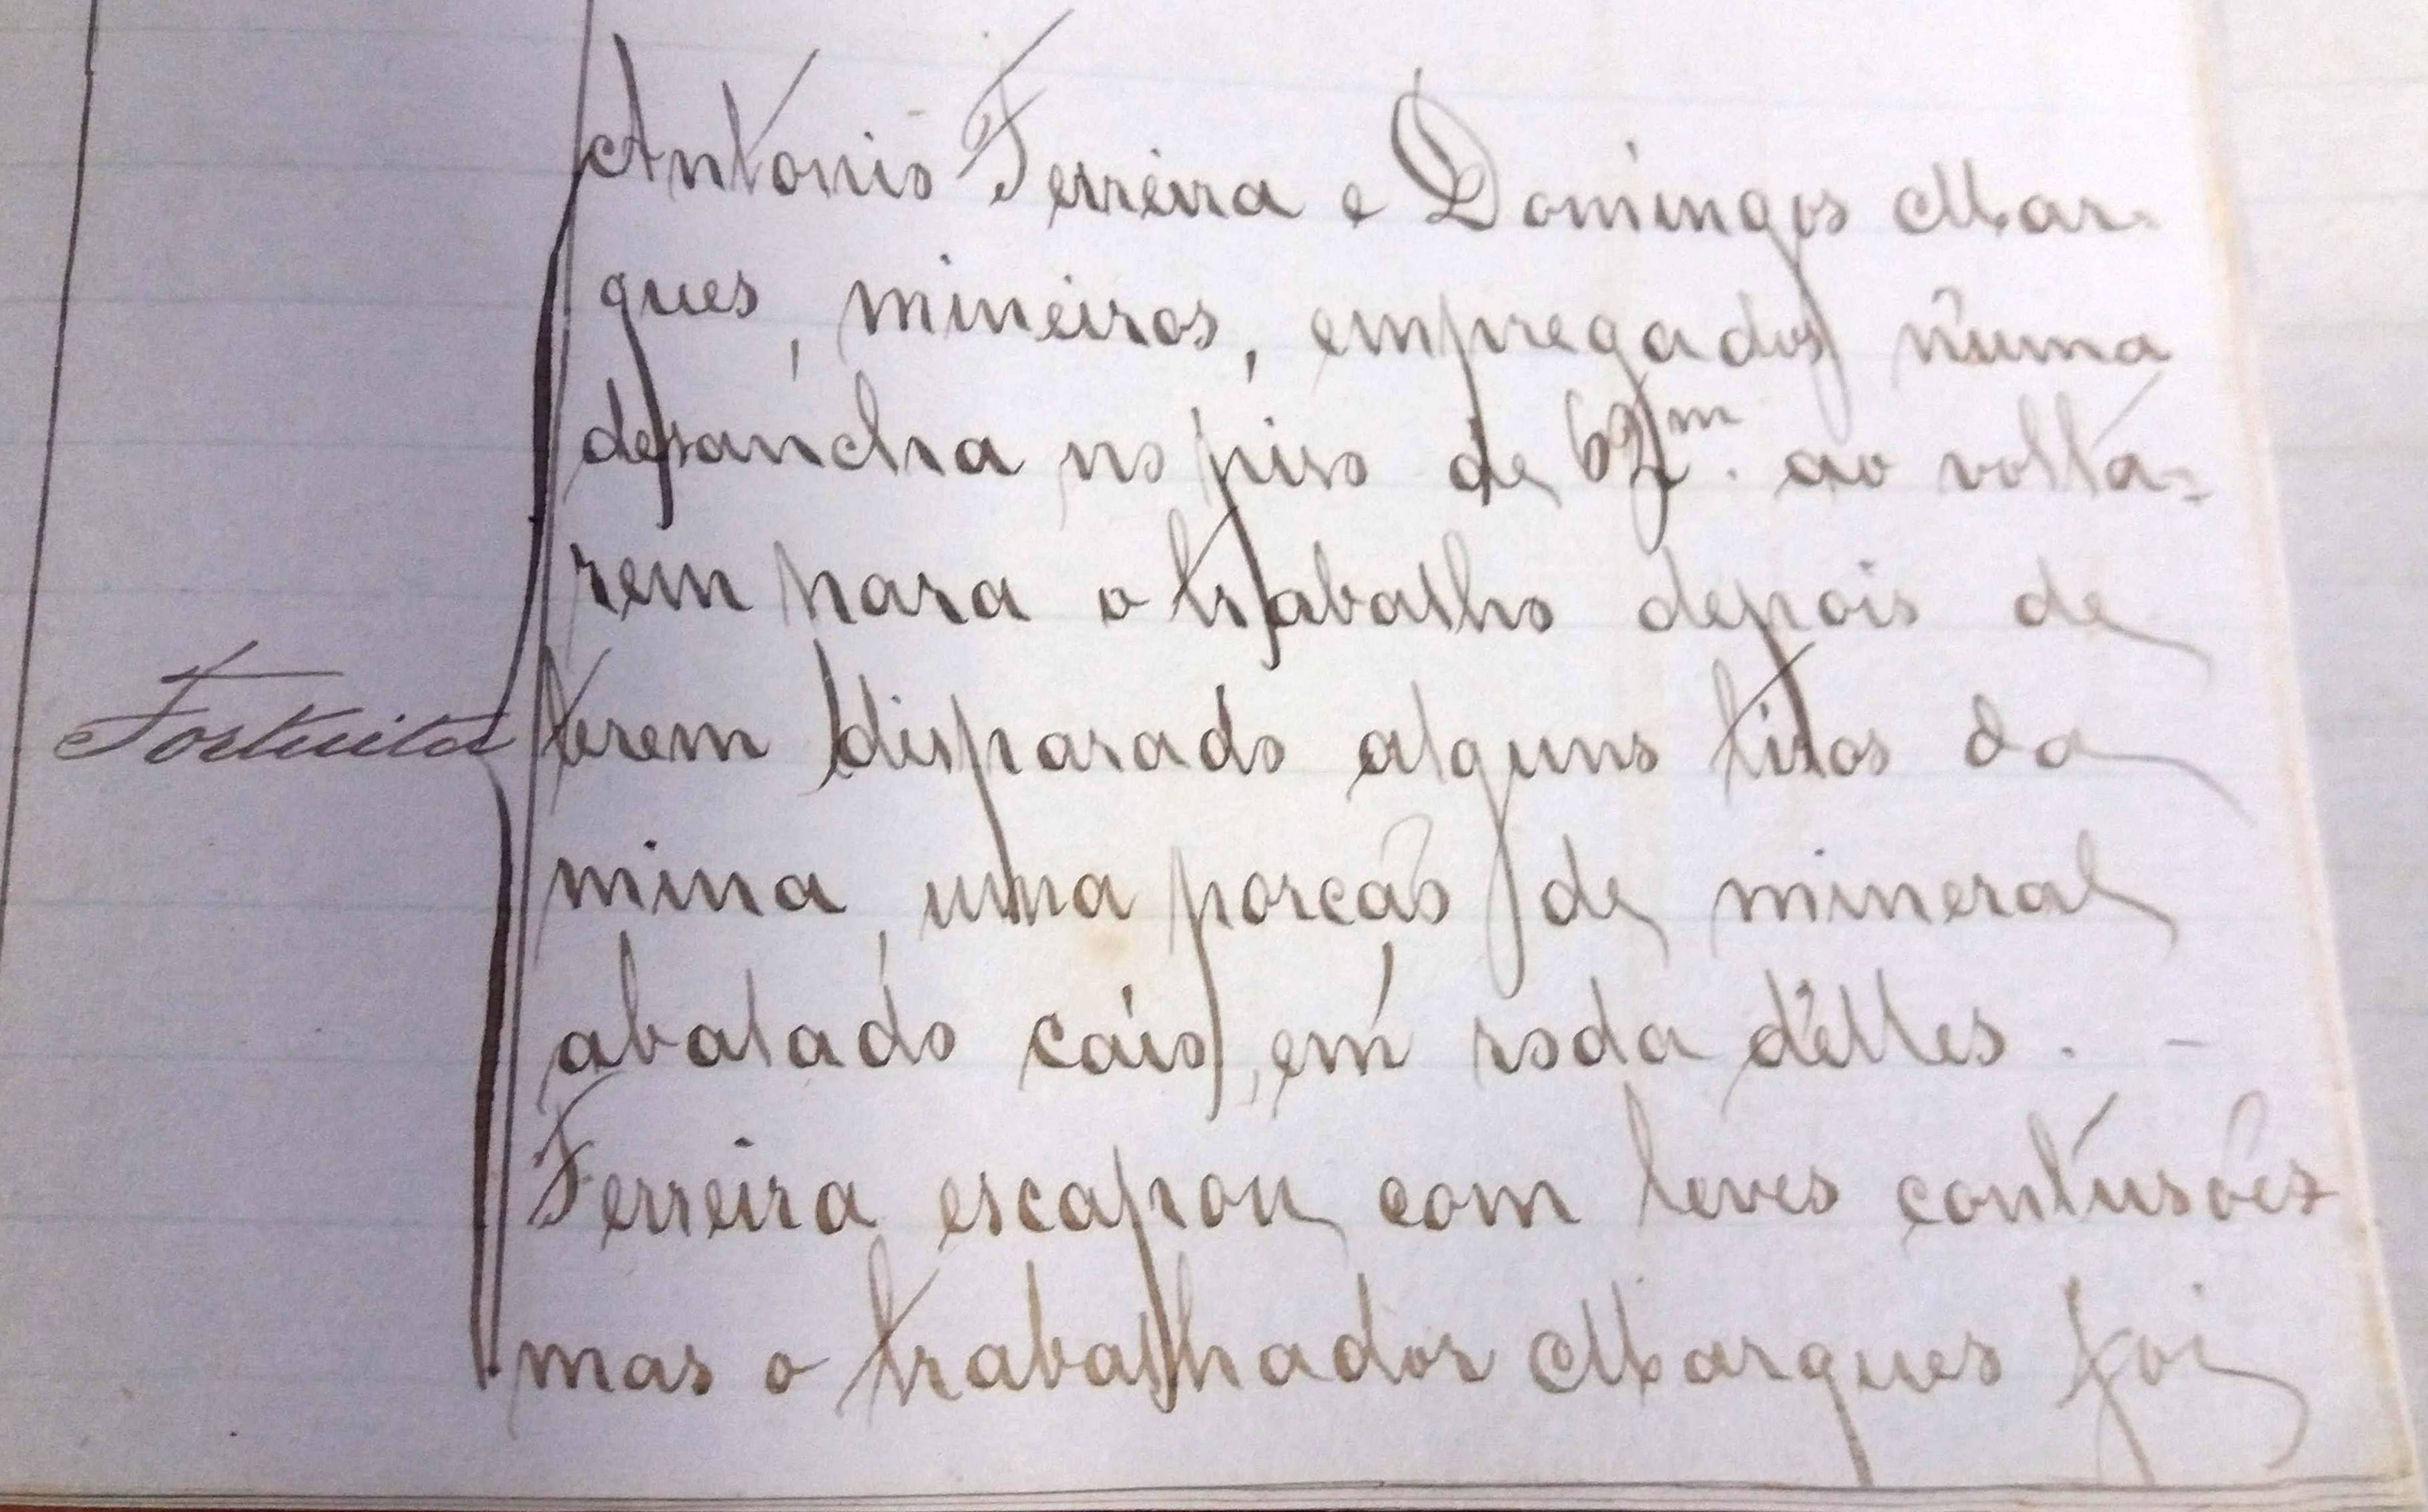 Antonio Ferreira e Domingos Mar-
ques, mineiros, empregados n'uma
desancha no piso de 62m. ao volta-
rem para o trabalho depois de
Fortuito
terem disparado alguns tiros da
mina, uma porcão de mineral
abalado caio, em roda d'elles. -
Ferreira escapou com leves contusões
mas o trabalhador Marques foi